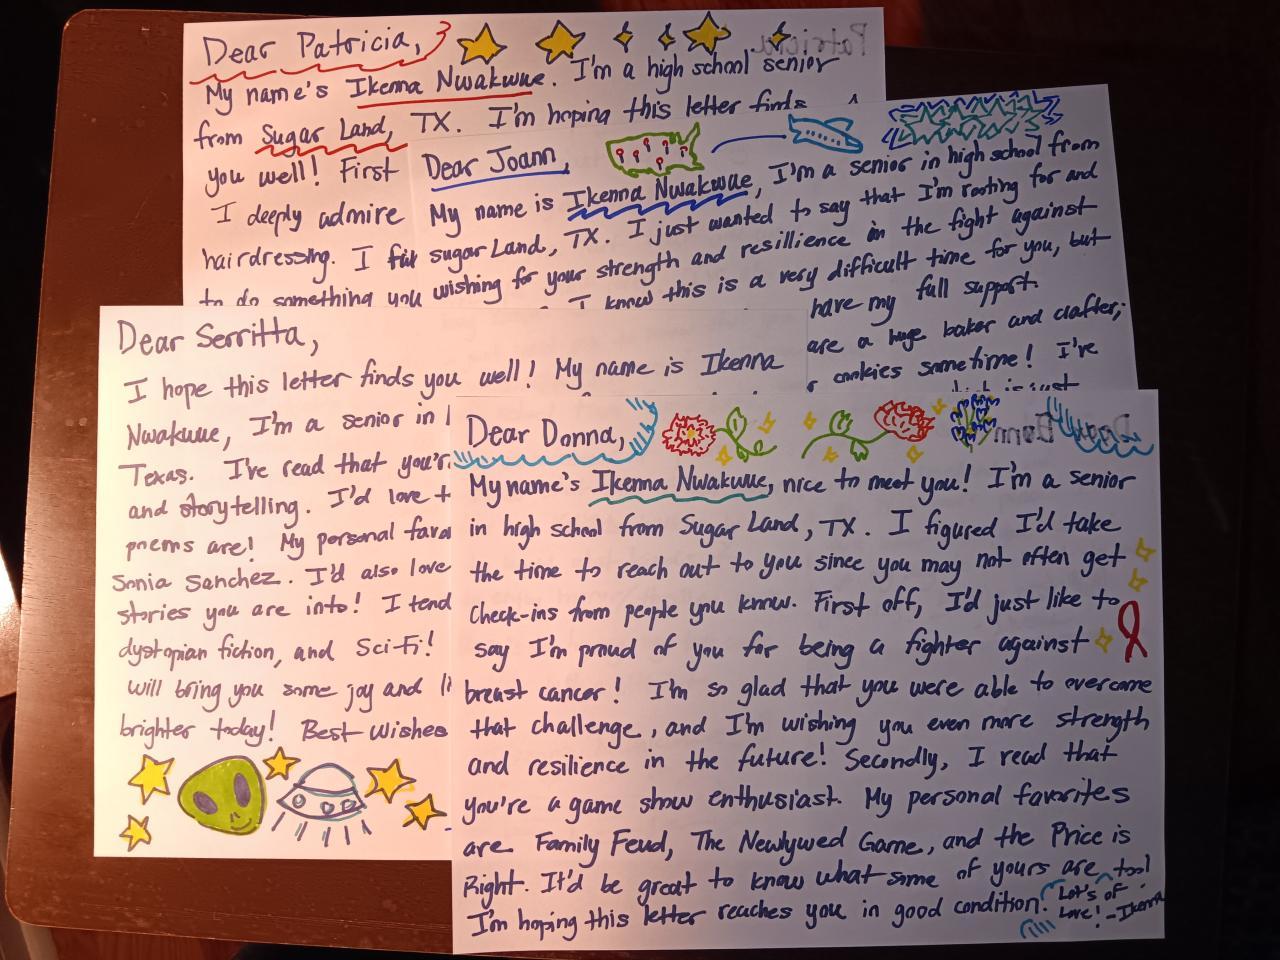 Dear Patricia,
My name's Ikenna Nwakwue. I'm a high school senior
from Sugar Land, TX. I'm hoping this letter finds
you well! First
I deeply admire
hairdressing. I
to do something you
Dear Joann,
My name is Ikenna Nwakwue, I'm a senior in high school from
sugar Land, TX. I just wanted to say that I'm rooting for and
wishing for your strength and resillience in the fight against
I know this is a very difficult time for you, but
have my full support.
are a huge baker and crafter;
cookies sometime! I've
is just
Dear Serritta,
I hope this letter finds you well! My name is Ikenna
Nwakwue, I'm a senior in
Texas. I've read that
and storytelling. I'd love
poems are! My personal
Sonia Sanchez. I'd also love
stories you are into! I tend
dystopian fiction, and Sci-Fi!
will bring you some joy and
brighter today! Best Wishes
Dear Donna,
My name's Ikenna Nwakwue, nice to meet you! I'm a senior
in high school from Sugar Land, TX. I figured I'd take
the time to reach out to you since you may not often get
check-ins from people you know. First off, I'd just like to
say I'm proud of you for being a fighter against
breast cancer! I'm so glad that you were able to overcome
that challenge, and I'm wishing you even more strength
and resilience in the future! Secondly, I read that
you're a game show enthusiast. My personal favorites
are Family Feud, The Newlywed Game, and the Price is
Right. It'd be great to know what some of yours are too!
I'm hoping this letter reaches you in good condition!
Lot's of
Love! -Ikenna